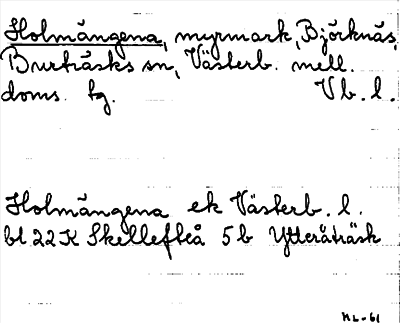 Holmängena, myrmark, Björknäs,
Burträsks sn, Västerb. mell.
doms. tg. Vb. l.
Holmängena ek Västerb. l.
bl 22 K Skellefteå 5 b Ytteråträsk
KL-61